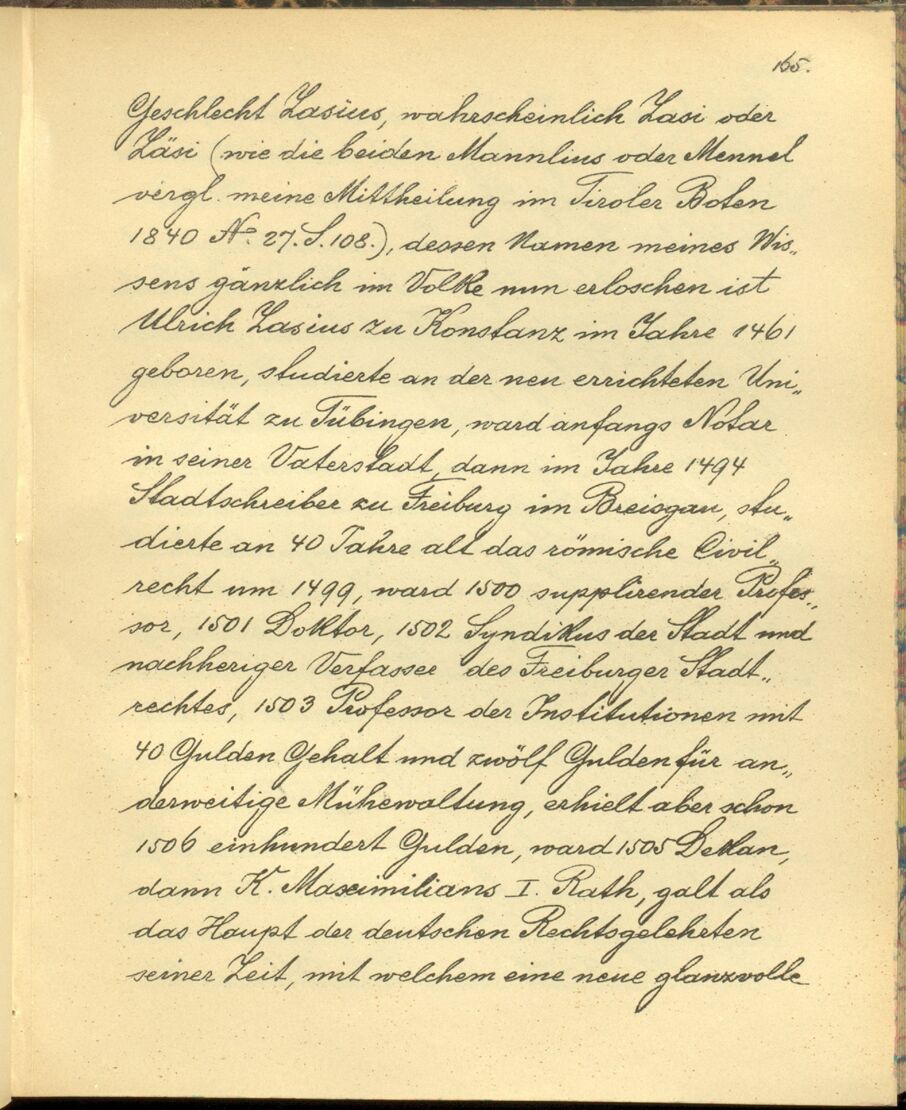 165.
Geschlecht Zasius, wahrscheinlich Zasi oder
Zäsi (wie die beiden Mannlius oder Mennel
vergl. meine Mittheilung im Tiroler Boten
1840 No. 27. S. 108.), dessen Namen meines Wis„
sens gänzlich im Volke nun erloschen ist
Ulrich Zasius zu Konstanz im Jahre 1461
geboren, studierte an der neu errichteten Uni„
versität zu Tübingen, ward anfangs Notar
in seiner Vaterstadt, dann im Jahre 1494
Stadtschreiber zu Freiburg im Breisgau, stu„
dierte an 40 Jahre alt das römische Civil„
recht um 1499, ward 1500 supplirender Profes„
sor, 1501 Doktor, 1502 Syndikus der Stadt und
nachheriger Verfasser des Freiburger Stadt„
rechtes, 1503 Professor der Institutionen mit
40 Gulden Gehalt und zwölf Gulden für an„
derweitige Mühewaltung, erhielt aber schon
1506 einhundert Gulden, ward 1505 Dekan,
dann K. Maximilians I. Rath, galt als
das Haupt der deutschen Rechtsgelehrten
seiner Zeit, mit welchem eine neue glanzvolle